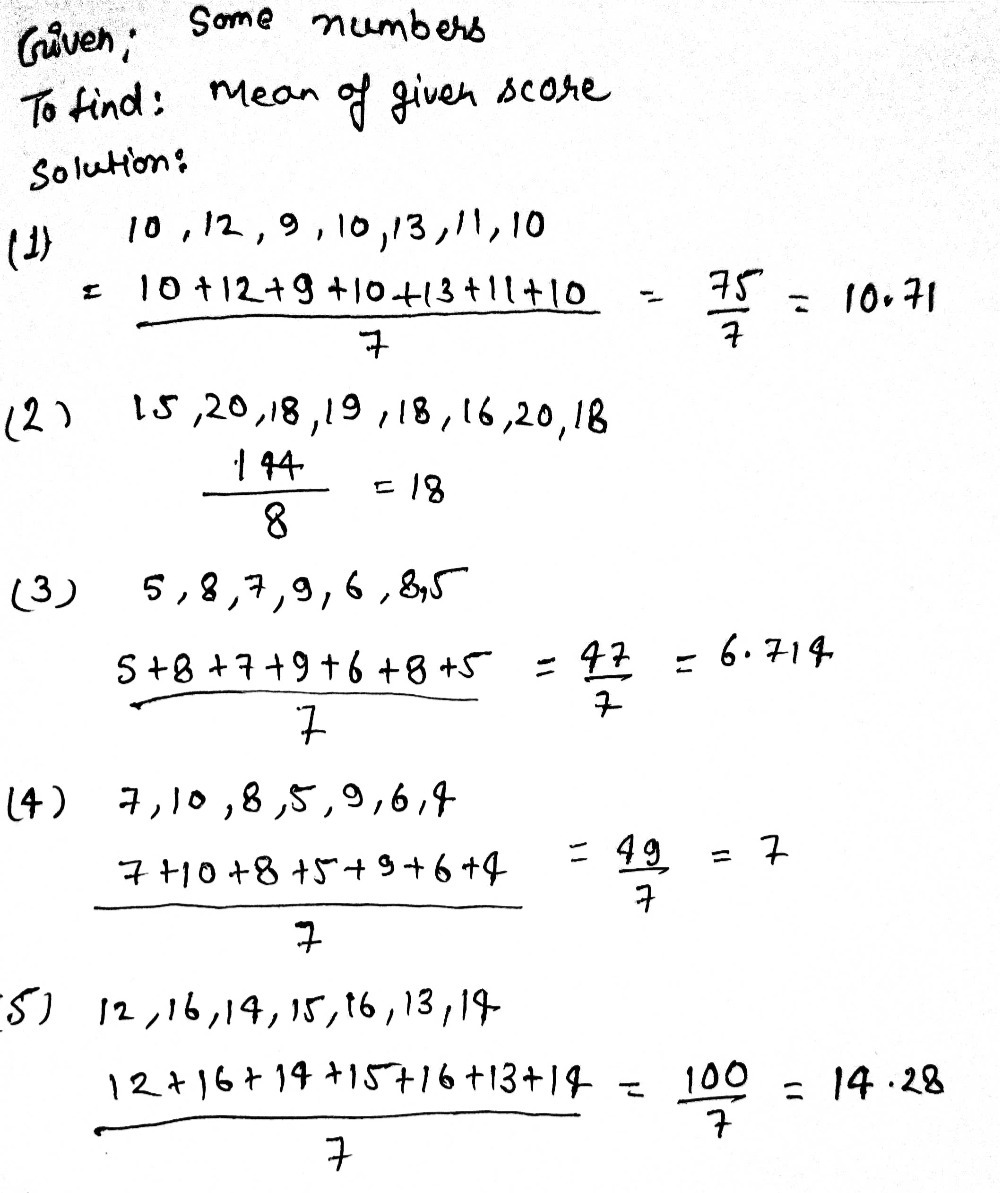 Given; Some numbers
To find: Mean of given score
Solution:
(1) 10, 12, 9, 10, 13, 11, 10
= 10+12+9+10+13+11+10 / 7 = 75/7 = 10.71
(2) 15, 20, 18, 19, 18, 16, 20, 18
144/8 = 18
(3) 5, 8, 7, 9, 6, 8, 5
5+8+7+9+6+8+5 / 7 = 47/7 = 6.714
(4) 7, 10, 8, 5, 9, 6, 4
7+10+8+5+9+6+4 / 7 = 49/7 = 7
(5) 12, 16, 14, 15, 16, 13, 14
12+16+14+15+16+13+14 / 7 = 100/7 = 14.28